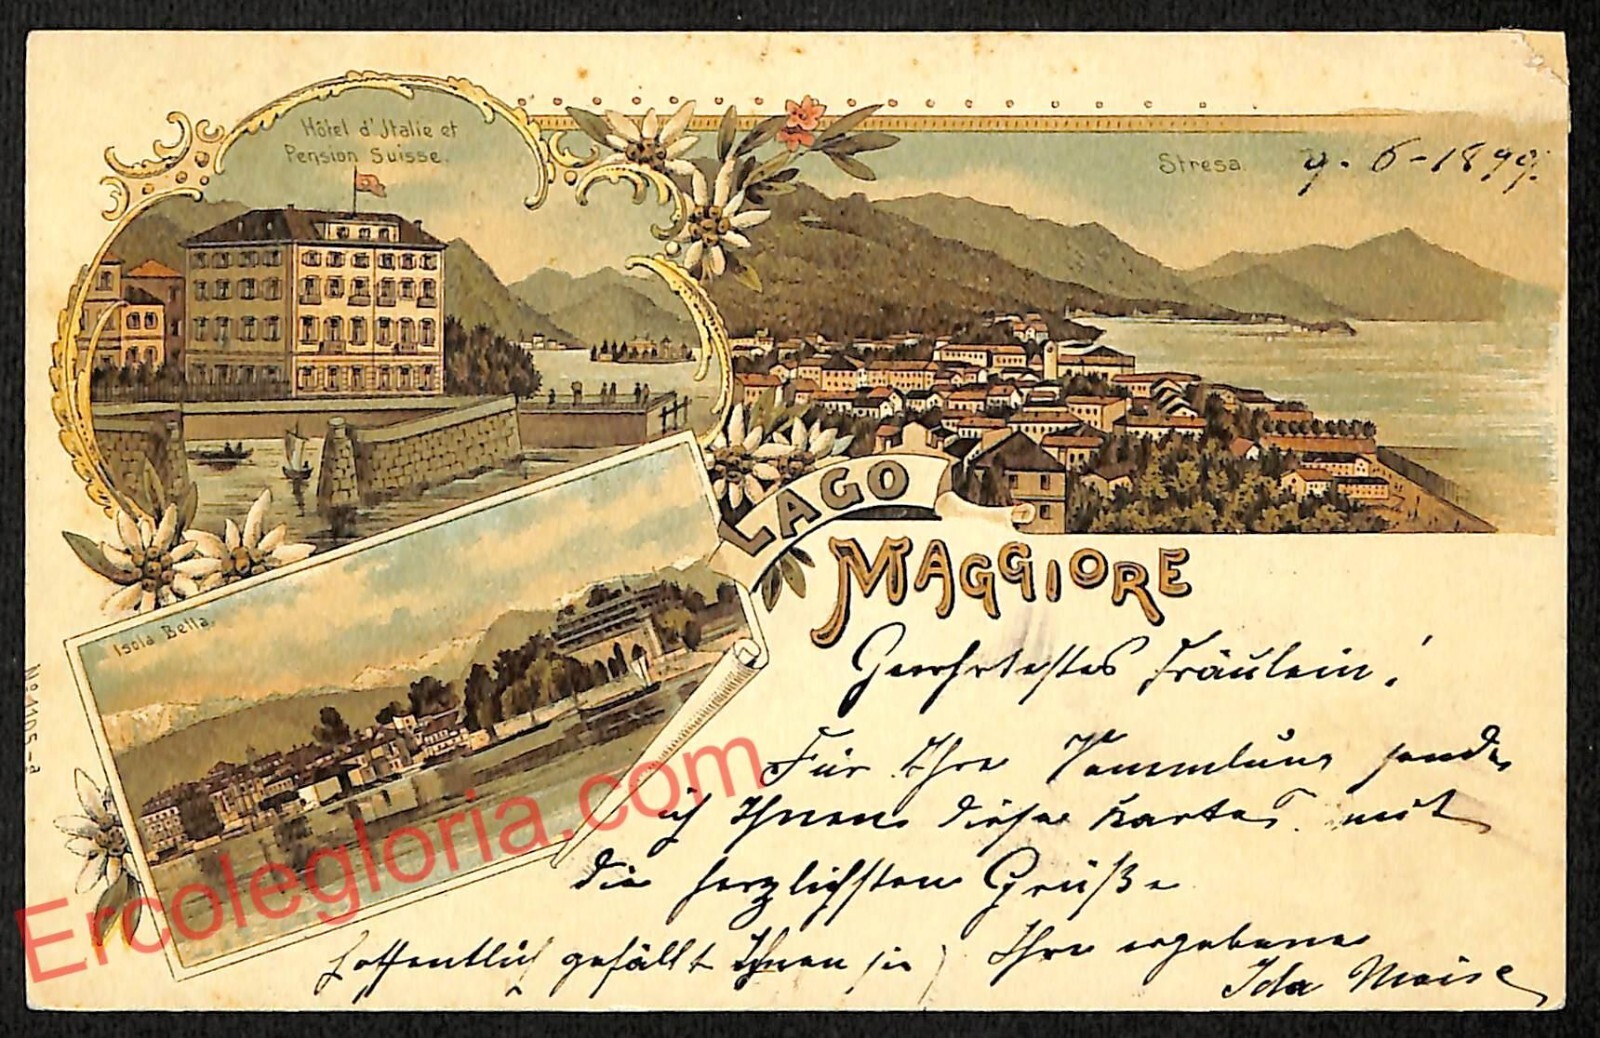 Hôtel d'Italie et
Pension Suisse.
Stresa.
9. 6-1899.
LAGO
MAGGIORE
Isola Bella.
No 1105-a
Geehrtestes Fräulein!
Für Ihre Sammlung sende
ich Ihnen diese Karte mit
die herzlichsten Grüße
hoffentlich gefällt Ihnen sie) Ihre ergebene
Ida
Ercolegloria.com